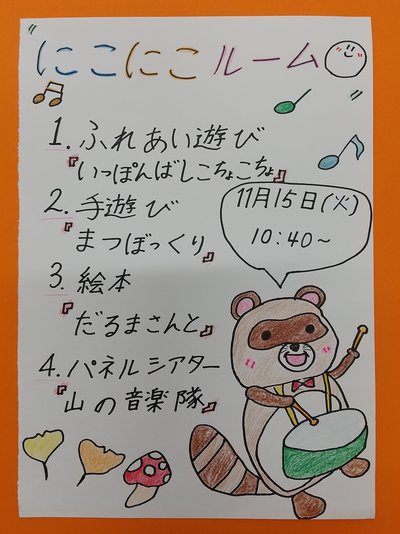 にこにこルーム
1. ふれあい遊び
『いっぽんばしこちょこちょ』
2. 手遊び
『まつぼっくり』
3. 絵本
『だるまさんと』
4. パネルシアター
『山の音楽隊』
11月15日(火)
10:40~